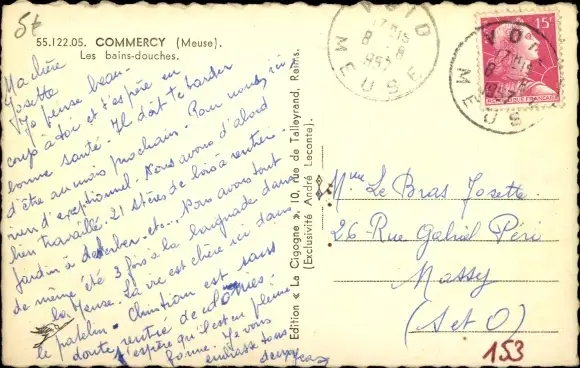 St
55.122.05. COMMERCY (Meuse).
Les bains-douches.
Ma chère
Josette
Je pense beau-
coup à toi et t'espère en
bonne santé. Il doit te tarder
d'être au mois prochain. Pour nous, ici
rien d'exceptionnel. Nous avons d'abord
bien travaillé. 21 stères de bois à rentrer.
jardin à bêcher etc... Nous avons tout
de même été 3 fois à la baignade dans
la Meuse. La vie est chère ici dans
le patelin. Christian est sans
doute rentré de colonie.
J'espère qu'il est en pleine
forme. Je vous
embrasse tous
Edition « La Cigogne », 10, rue de Talleyrand, Reims.
(Exclusivité André Leconte).
VOID
17H15
8 - 8
1957
MEUSE
15F
VOID
8
1957
MEUSE
Mlle Le Bras Josette
26 Rue Gabriel Peri
Massy
(S et O)
153